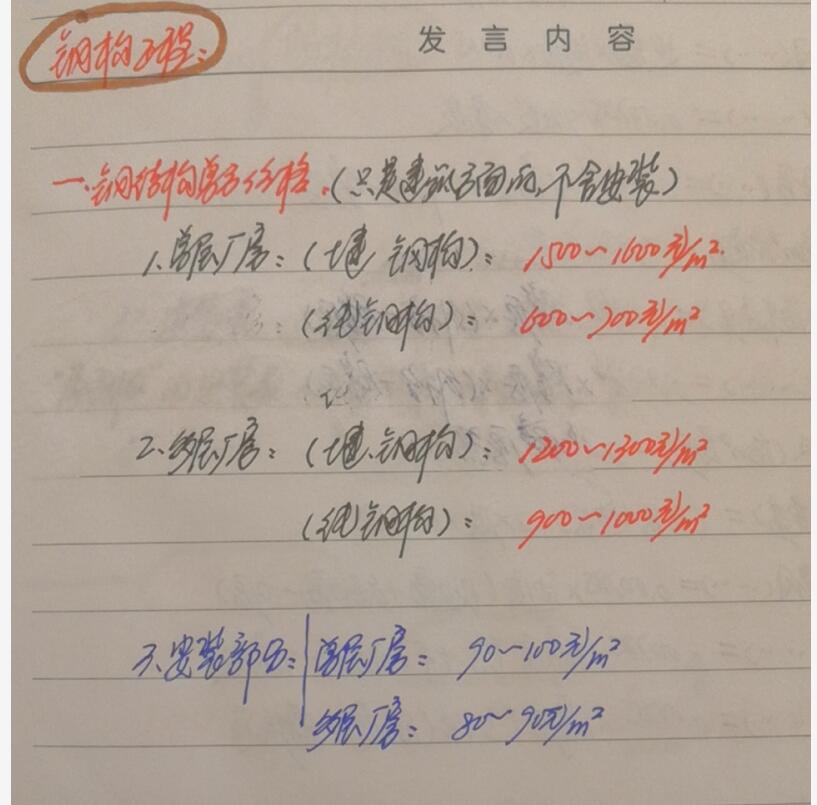 发言内容
钢构工程:
一.钢结构单方价格.(只是建筑方面的,不含安装)
1.单层厂房:(土建、钢构): 1500~1600元/m².
(纯钢构): 600~700元/m²
2.多层厂房:(土建、钢构): 1200~1300元/m²
(纯钢构): 900~1000元/m²
3.安装部分: 单层厂房: 90~100元/m²
多层厂房: 80~90元/m²